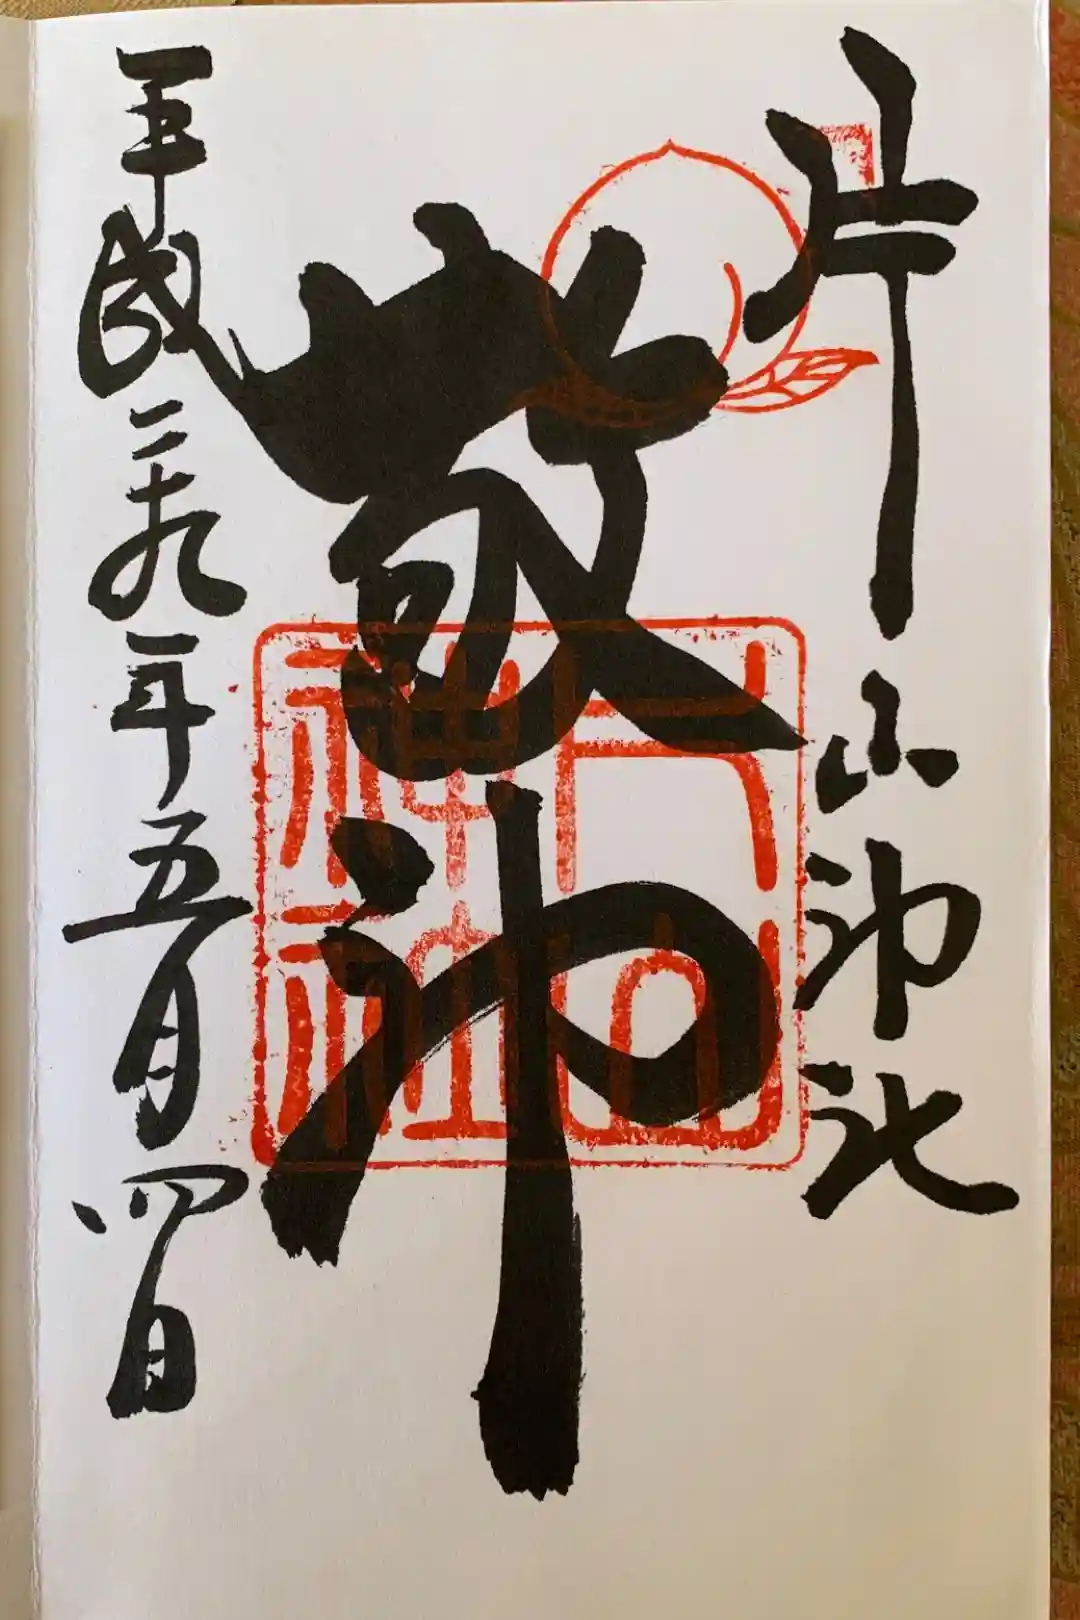 片山神社
敬神
平成二十九年五月四日
片山神社